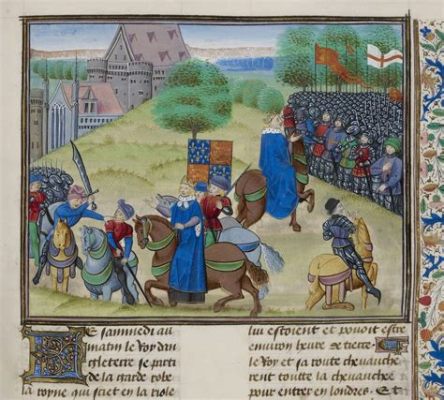 Le sammedi au
matin le Roy dan
gleterre se parti
de la garde robe
la royne qui sciet en la riole
lui estoient et pouoit estre
enuiron heure de tierce
le Roy et sa route cheuauche
rent toutte la cheuauchee
pour entrer en londres Et